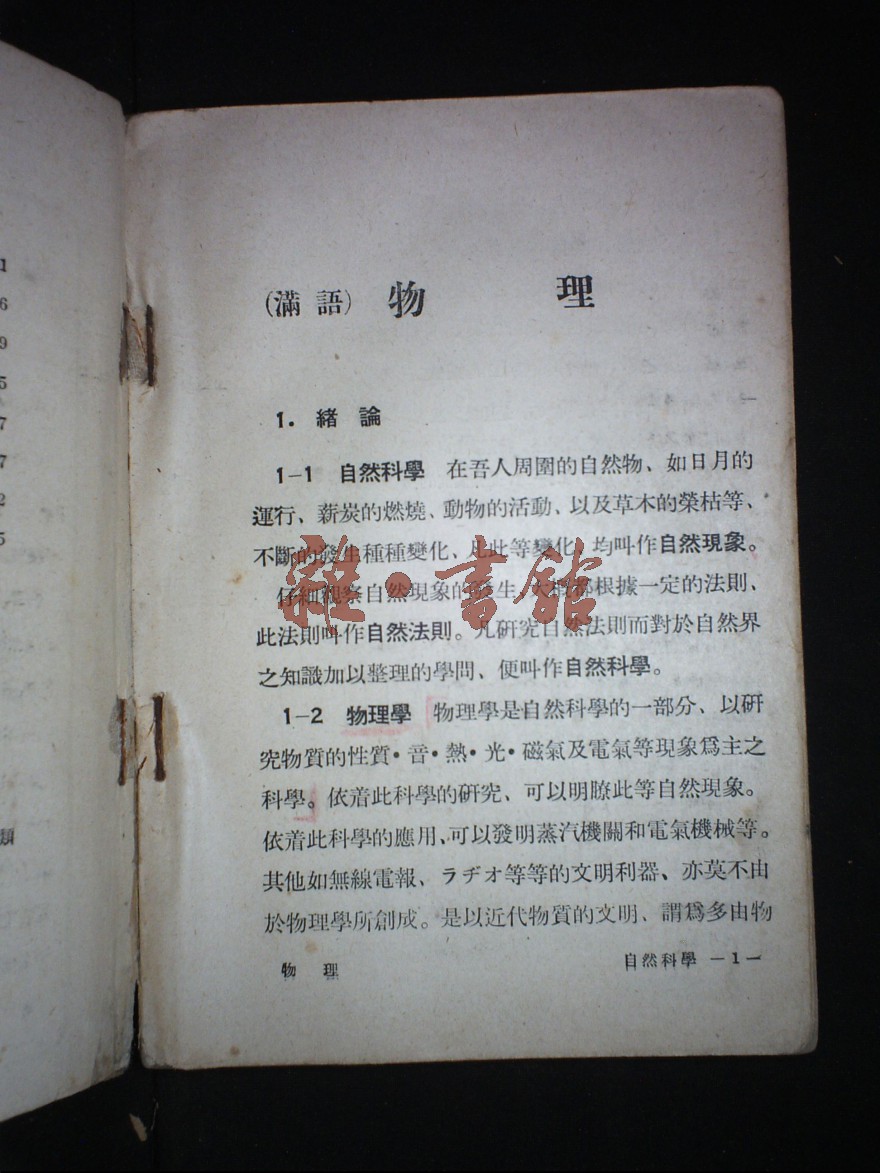 1
6
9
5
7
7
2
5
類
(滿語) 物理
1. 緒論
1-1 自然科學 在吾人周圍的自然物、如日月的
運行、薪炭的燃燒、動物的活動、以及草木的榮枯等、
不斷的發生種種變化、凡此等變化、均叫作自然現象。
仔細觀察自然現象的發生、大概都根據一定的法則、
此法則叫作自然法則。凡研究自然法則而對於自然界
之知識加以整理的學問、便叫作自然科學。
1-2 物理學 物理學是自然科學的一部分、以研
究物質的性質・音・熱・光・磁氣及電氣等現象爲主之
科學。依着此科學的研究、可以明瞭此等自然現象。
依着此科學的應用、可以發明蒸汽機關和電氣機械等。
其他如無線電報、ラヂオ等等的文明利器、亦莫不由
於物理學所創成。是以近代物質的文明、謂爲多由物
物理 自然科學 —1—
雜・書館